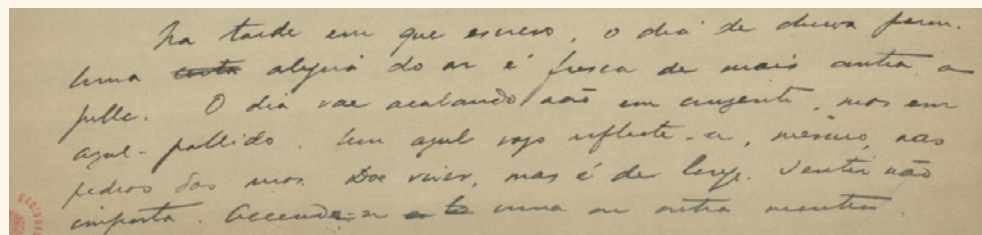 Na tarde em que escrevo, o dia de chuva parou.
Uma certa alegria do ar é fresca de mais contra a
pelle. O dia vae acabando não em cinzento, mas em
azul-pallido. Um azul vago reflecte-se, mesmo, nas
pedras das ruas. Doe viver, mas é de longe. Sentir não
importa. Accende-se uma ou outra montra.